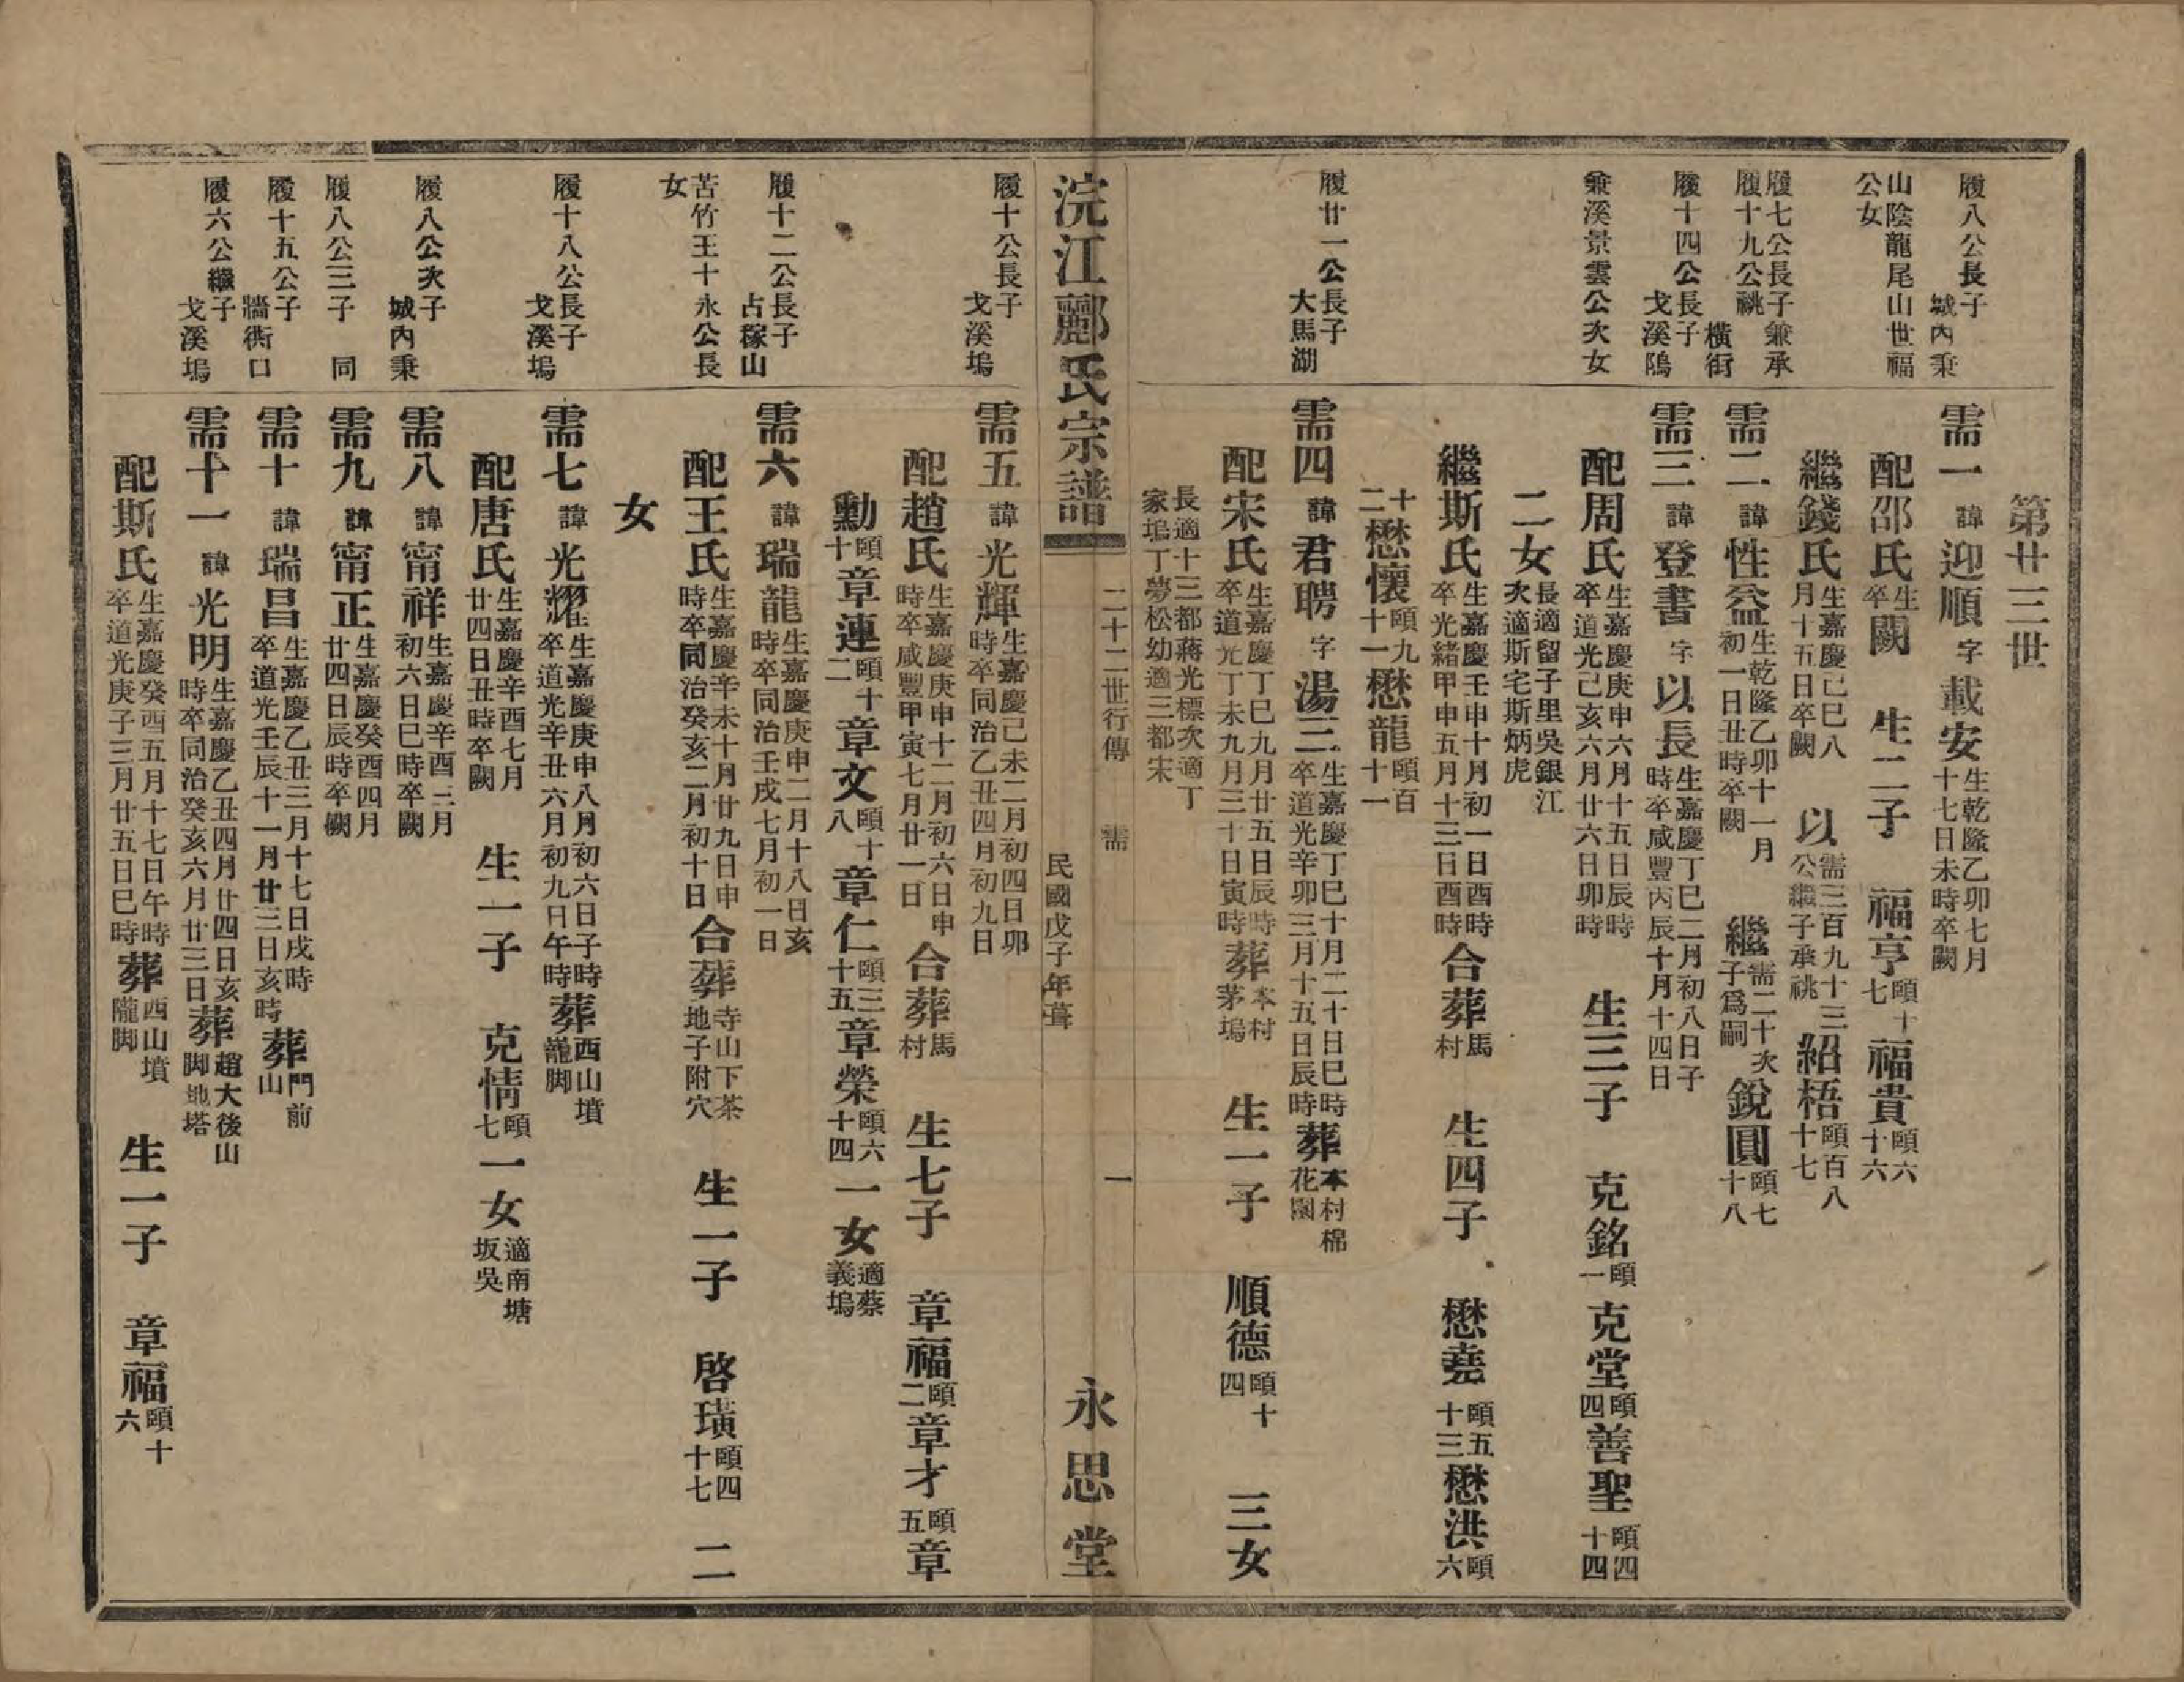 第廿三世
履八公長子 城內秉
需一 諱迎順 字載安 生乾隆乙卯七月十七日未時卒闕
山陰龍尾山世福公女
配邵氏 生卒闕 生二子 福亨 頤十七 福貴 頤六十六
繼錢氏 生嘉慶己巳八月十五日卒闕 以 需三百九十三公繼子承祧 紹梧 頤百八十七
履七公長子兼承履十九公祧 橫街
需二 諱性益 生乾隆乙卯十一月初一日丑時卒闕 繼 需二十次子爲嗣 銳圓 頤七十八
履十四公長子 戈溪隖
需三 諱登書 字以長 生嘉慶丁巳二月初八日子時卒咸豐丙辰十月十四日
兼溪景雲公次女
配周氏 生嘉慶庚申六月十五日辰時卒道光己亥六月廿六日卯時 生三子 克銘 頤一 克堂 頤四 善聖 頤四十四
二女 長適留子里吳銀江次適斯宅斯炳虎
繼斯氏 生嘉慶壬申十月初一日酉時卒光緒甲申五月十三日酉時 合葬 馬村 生四子 懋堯 頤五十三 懋洪 頤六
十二 懋懷 頤九十一 懋龍 頤百十一
履廿一公長子 大馬湖
需四 諱君聘 字湯三 生嘉慶丁巳十月二十日巳時卒道光辛卯三月十五日辰時 葬 本村棉花園
配宋氏 生嘉慶丁巳九月廿五日辰時卒道光丁未九月三十日寅時 葬 本村茅塢 生一子 順德 頤十四 三女
長適十三都蔣光標次適丁家塢丁夢松幼適三都宋
浣江酈氏宗譜 二十二世行傳 需 一 民國戊子年葺 永思堂
履十公長子 戈溪塢
需五 諱光輝 生嘉慶己未二月初四日卯時卒同治乙丑四月初九日
配趙氏 生嘉慶庚申十二月初六日申時卒咸豐甲寅七月廿一日 合葬 馬村 生七子 章福 頤二 章才 頤五 章
勳 頤十 章連 頤十二 章文 頤十八 章仁 頤三十五 章榮 頤六十四 一女 適蔡義塢
履十二公長子 占稼山
需六 諱瑞龍 生嘉慶庚申二月十八日亥時卒同治壬戌七月初一日
苦竹王十永公長女
配王氏 生嘉慶辛未十月廿九日申時卒同治癸亥二月初十日 合葬 寺山下茶地子附穴 生一子 啓璜 頤四十七 二
女
履十八公長子 戈溪塢
需七 諱光燿 生嘉慶庚申八月初六日子時卒道光辛丑六月初九日午時 葬 西山墳隴脚
配唐氏 生嘉慶辛酉七月廿四日丑時卒闕 生一子 克情 頤七 一女 適南塘坂吳
履八公次子 城內秉
需八 諱甯祥 生嘉慶辛酉三月初六日巳時卒闕
履八公三子 同
需九 諱甯正 生嘉慶癸酉四月廿四日辰時卒闕
履十五公子 牆衖口
需十 諱瑞昌 生嘉慶乙丑三月十七日戌時卒道光壬辰十一月廿三日亥時 葬 門前山
履六公繼子 戈溪塢
需十一 諱光明 生嘉慶乙丑四月廿四日亥時卒同治癸亥六月廿三日 葬 趙大後山脚地塔
配斯氏 生嘉慶癸酉五月十七日午時卒道光庚子三月廿五日巳時 葬 西山墳隴脚 生一子 章福 頤十六